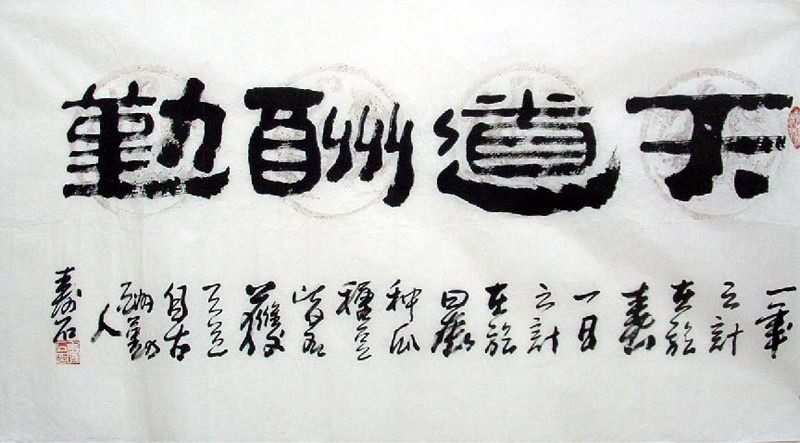 天道酬勤
一歲
之計
在於
春
一日
之計
在於
晨
种瓜
種豆
皆有
獲
天道
自古
酬勤
人
壽石